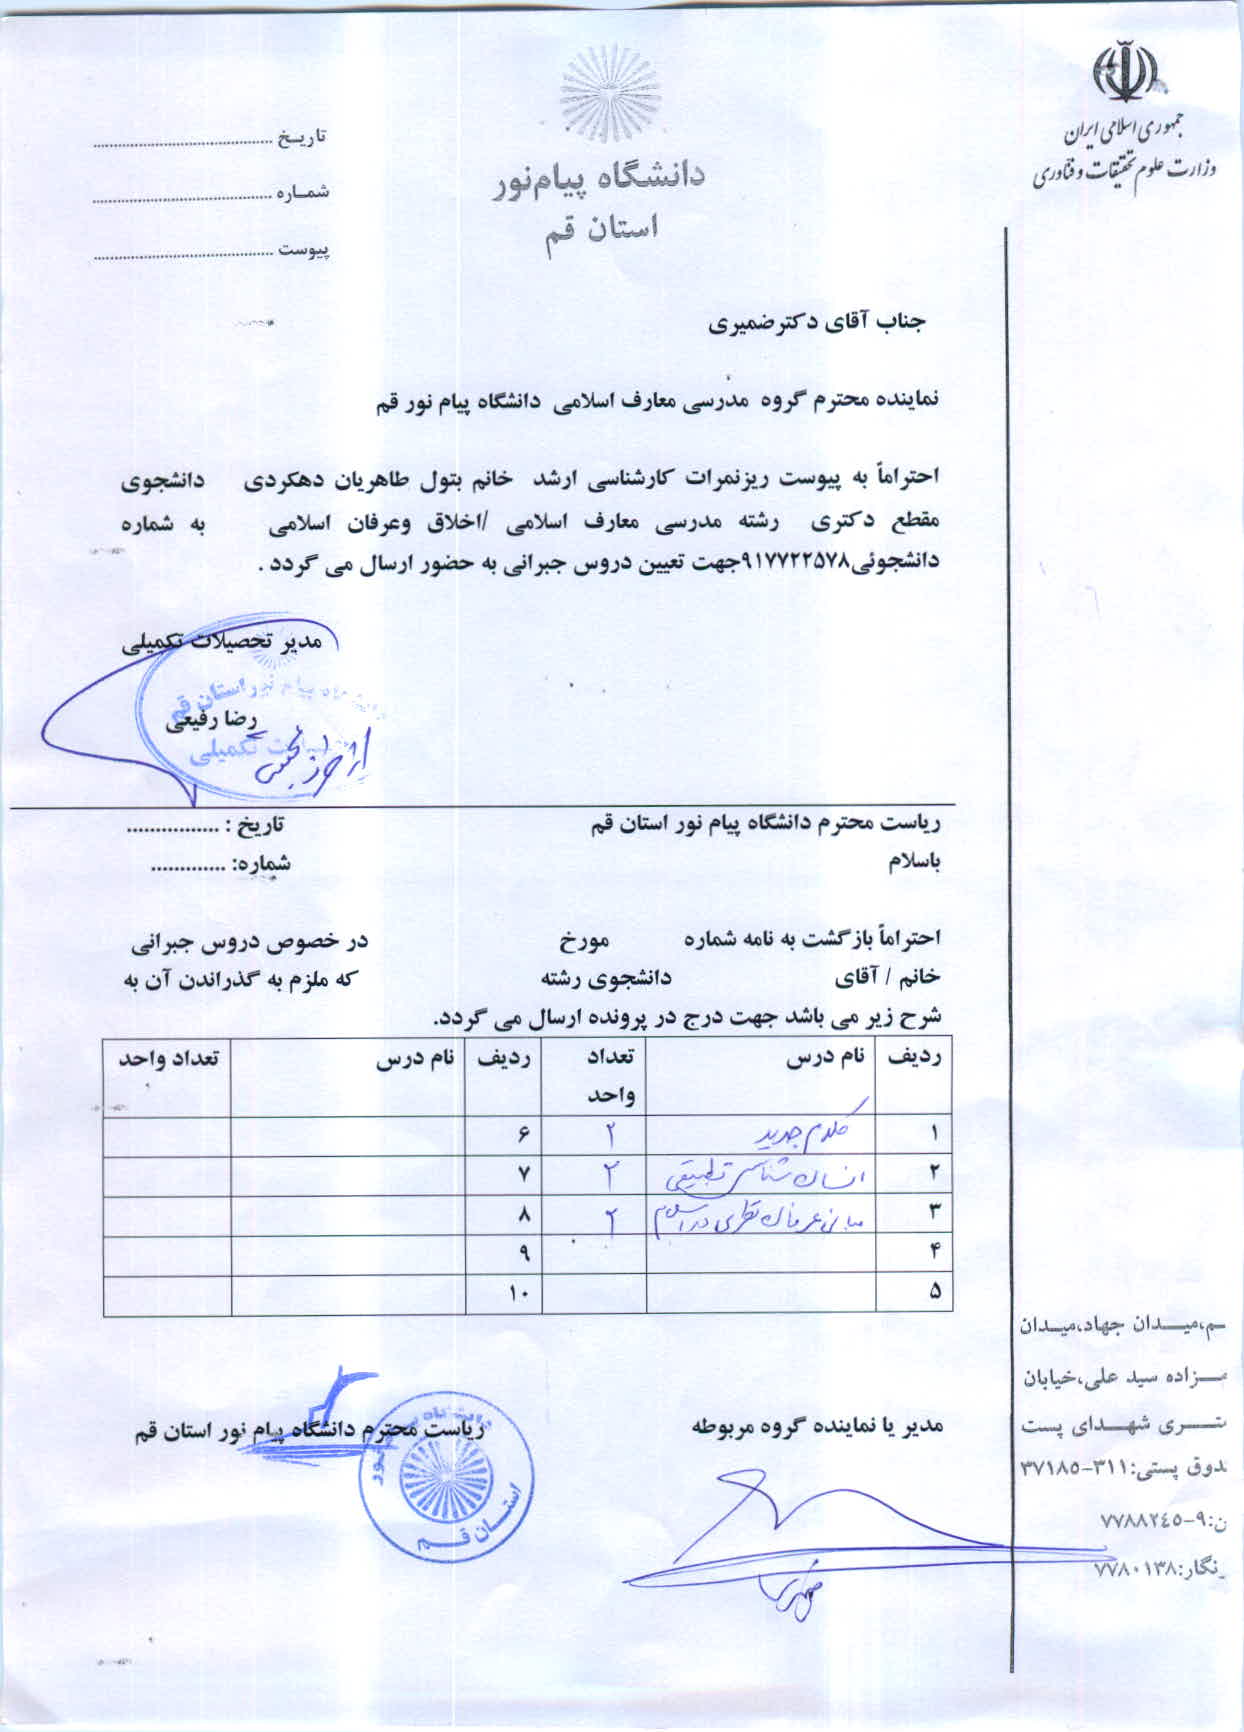 جمهوری اسلامی ایران
وزارت علوم تحقیقات و فناوری
دانشگاه پیام‌نور
استان قم
تاریخ ........................
شماره ........................
پیوست ........................
جناب آقای دکترضمیری
نماینده محترم گروه مدرسی معارف اسلامی دانشگاه پیام نور قم
احتراماً به پیوست ریزنمرات کارشناسی ارشد خانم بتول طاهریان دهکردی دانشجوی
مقطع دکتری رشته مدرسی معارف اسلامی /اخلاق وعرفان اسلامی به شماره
دانشجوئی۹۱۷۷۲۲۵۷۸جهت تعیین دروس جبرانی به حضور ارسال می گردد .
مدیر تحصیلات تکمیلی
رضا رفیعی
پیام نور استان قم
تکمیلی
ریاست محترم دانشگاه پیام نور استان قم تاریخ : ................
باسلام شماره: .............
احتراماً بازگشت به نامه شماره مورخ در خصوص دروس جبرانی
خانم / آقای دانشجوی رشته که ملزم به گذراندن آن به
شرح زیر می باشد جهت درج در پرونده ارسال می گردد.
ردیف نام درس تعداد واحد ردیف نام درس تعداد واحد
۱ کلام جدید ۲ ۶
۲ انسان شناسی تطبیقی ۲ ۷
۳ مبانی عرفان نظری در اسلام ۲ ۸
۴ ۹
۵ ۱۰
مدیر یا نماینده گروه مربوطه ریاست محترم دانشگاه پیام نور استان قم
استان قم
ـم،میـدان جهاد،میـدان
ـزاده سید علی،خیابان
ـری شهـدای پست
ـدوق پستی:۳۱۱-۳۷۱۸۵
ن:۹-۷۷۸۸۲٤۵
ـنگار:۷۷۸۰۱۳۸